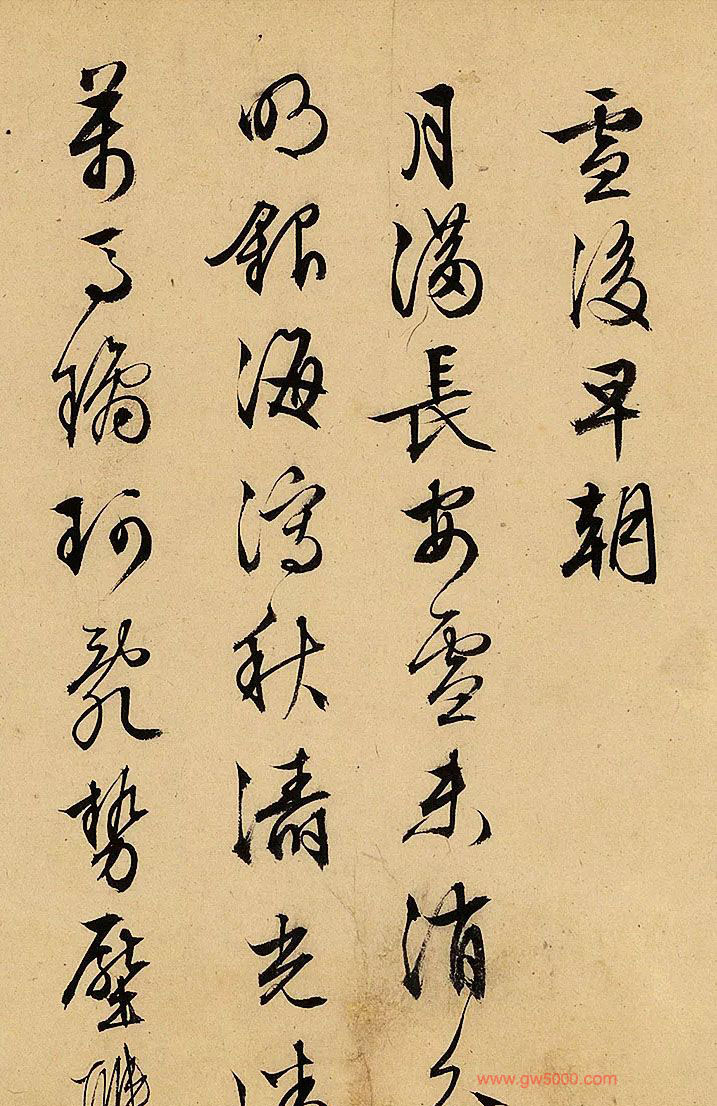 雪後早朝
月滿長安雪未消
明銀海瀉秋濤光
萬馬瓊珂亂勢壓
www.gw5000.com